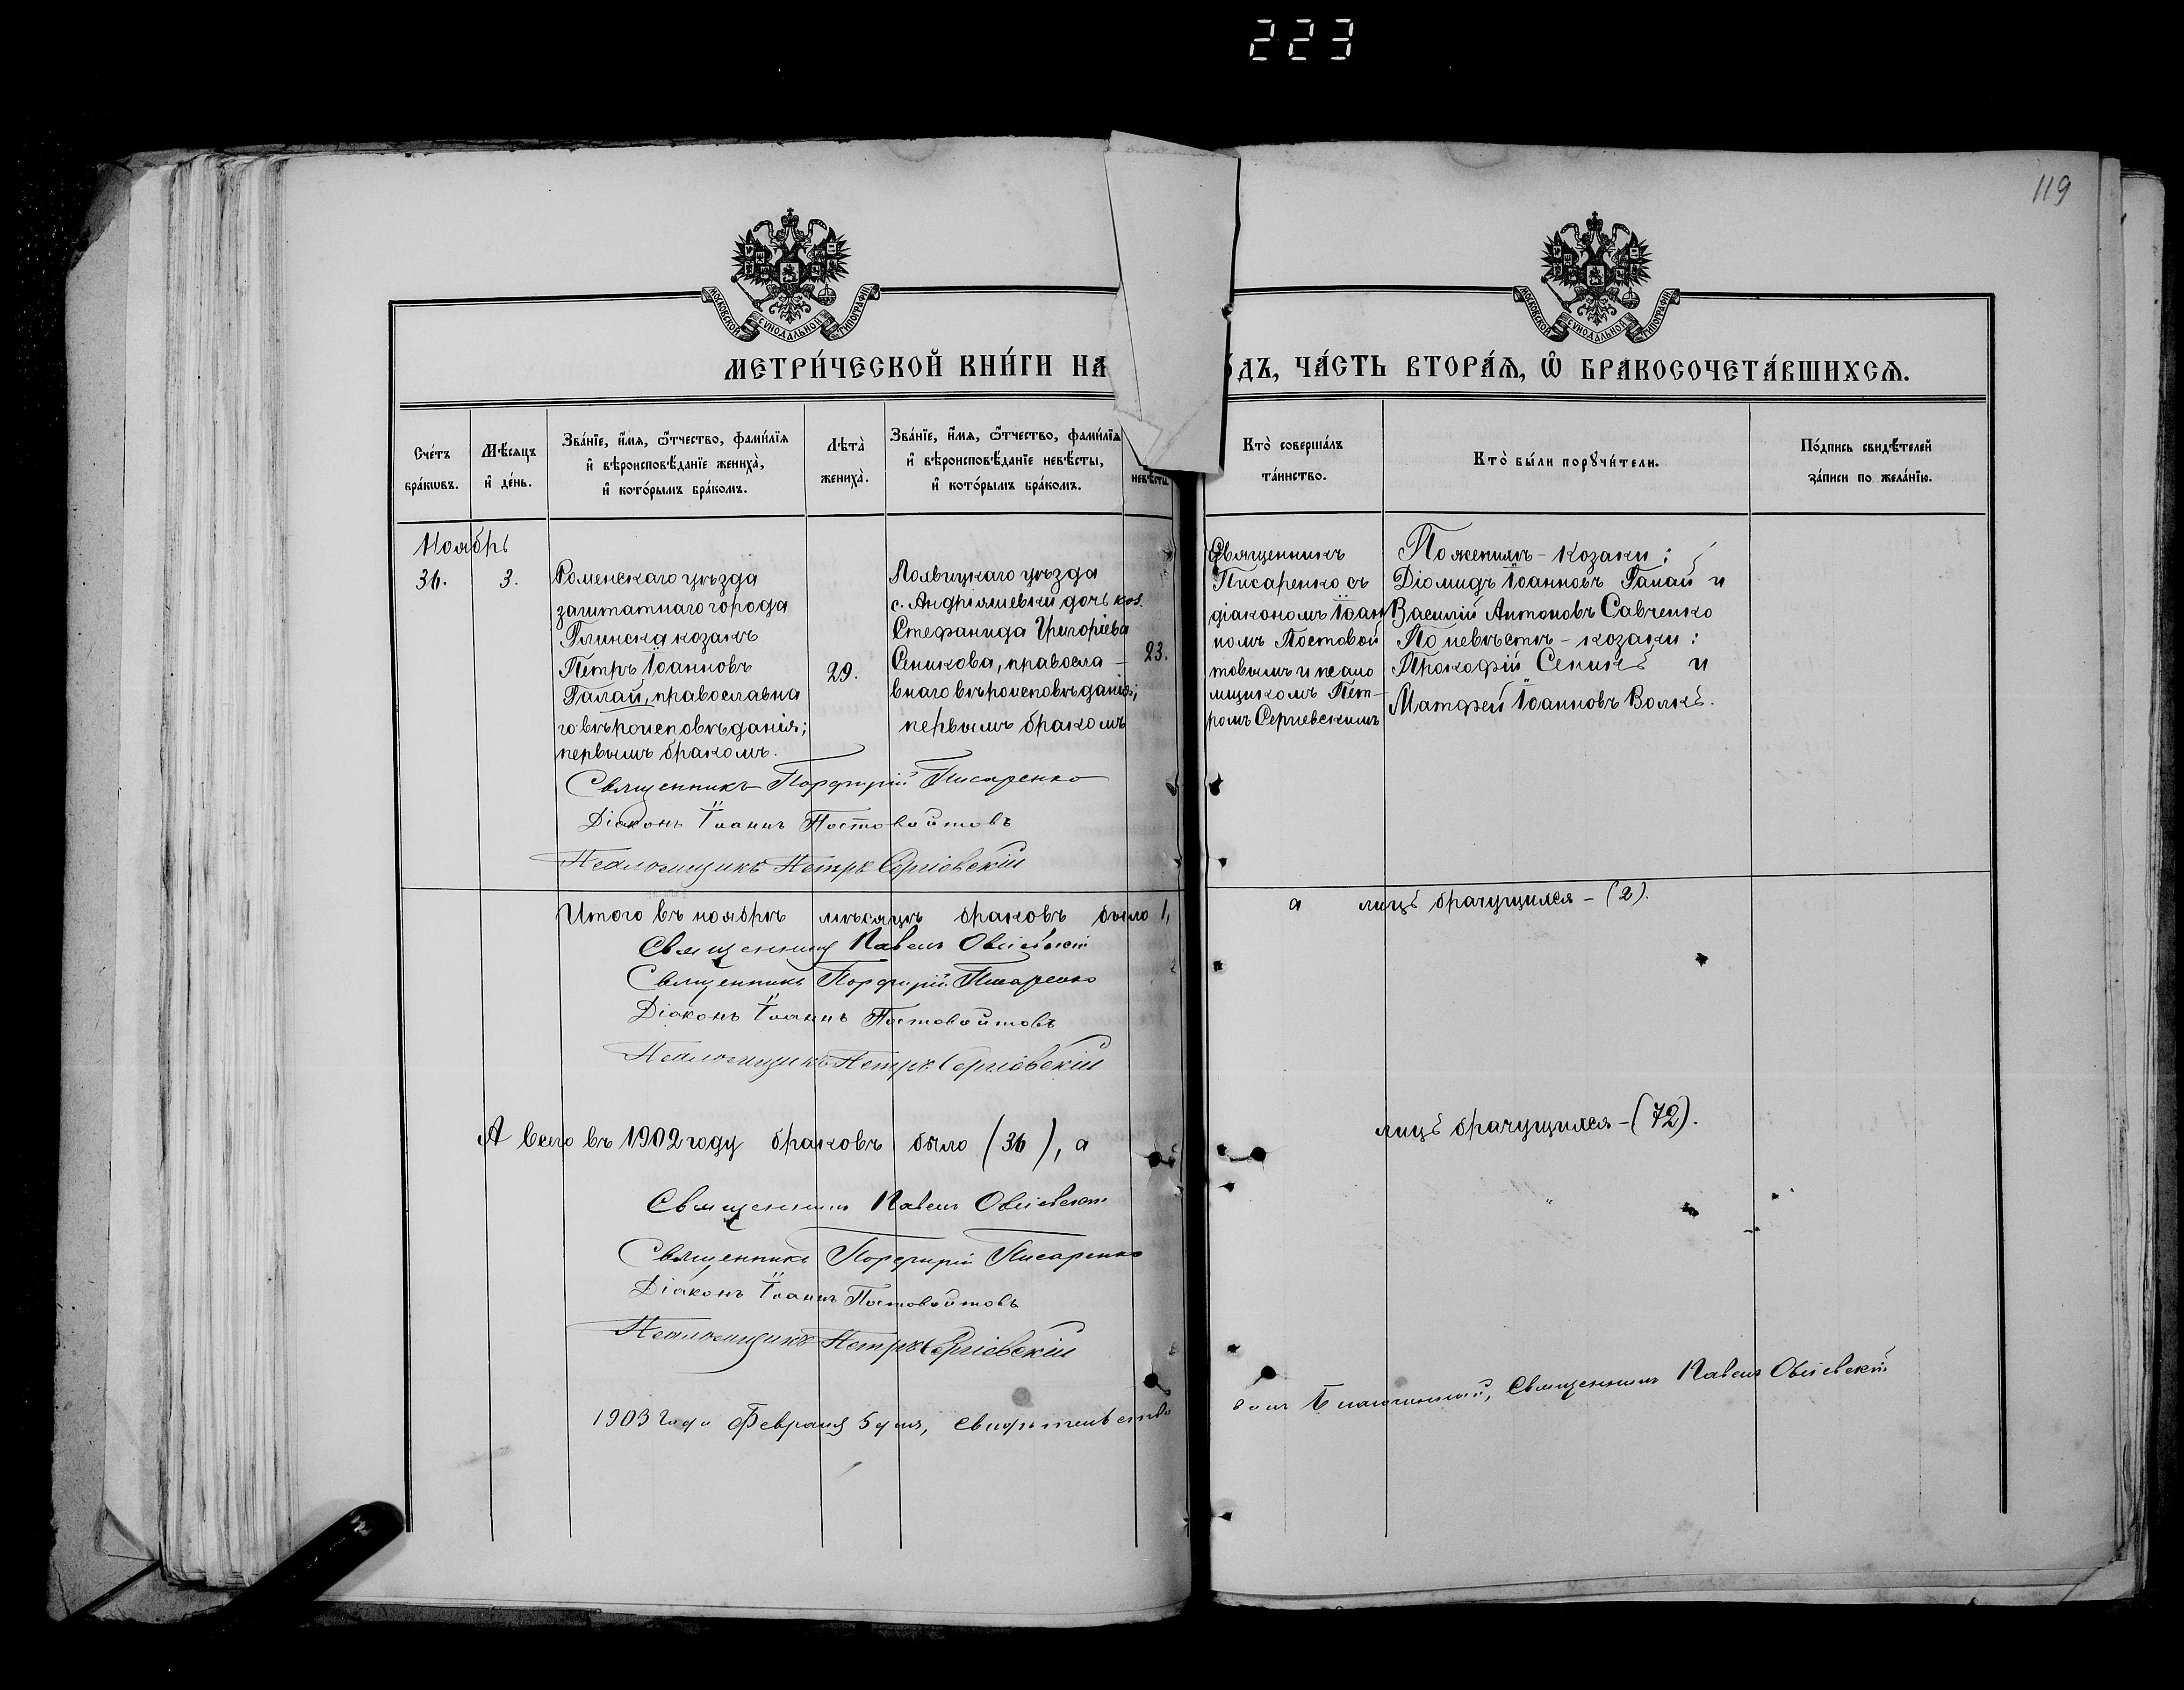 223
119
МОСКОВСКОЙ СѴНОДАЛЬНОЙ ТИПОГРАФІИ
МОСКОВСКОЙ СѴНОДАЛЬНОЙ ТИПОГРАФІИ
МЕТРИ́ЧЕСКОЙ КНИ́ГИ НА
О́ДЪ, ЧА́СТЬ ВТОРА́Ѧ, Ѡ҆ БРАКОСОЧЕТА́ВШИХСѦ.
Сче́тъ бра́кѡвъ.
Мѣ́сѧцъ и҆ де́нь.
Зва́нїе, и҆́мѧ, ѻ҆́тчество, фами́лїѧ и҆ вѣроисповѣ́данїе жениха̀, и҆ кото́рымъ бра́комъ.
Лѣта̀ жениха̀.
Зва́нїе, и҆́мѧ, ѻ҆́тчество, фами́лїѧ и҆ вѣроисповѣ́данїе невѣ́сты, и҆ кото́рымъ бра́комъ.
невѣ́сты.
Кто̀ соверша́лъ та́инство.
Кто̀ бы́ли порꙋчи́тели.
По́дпись свидѣ́телей за́писи по жела́нїю.
Ноябрь
36.
3.
Роменскаго уѣзда
заштатнаго города
Глинска козакъ
Петръ Іоанновъ
Галай, православна
го вѣроисповѣданія;
первымъ бракомъ.
29.
Лохвицкаго уѣзда
с. Андріяшевки дочь коз.
Стефанида Григоріева
Сеникова, правосла-
внаго вѣроисповѣданія;
первымъ бракомъ
23.
Священникъ
Писаренко съ
діакономъ Іоан
номъ Постовой
товымъ и псало
мщикомъ Пет-
ромъ Сергіевскимъ
По женихѣ - козаки:
Діомидъ Іоанновъ Галай и
Василій Антоновъ Савченко
По невѣстѣ - козаки:
Прокофій Сеникъ и
Матфей Іоанновъ Волкъ.
Священникъ Порфирій Писаренко
Діаконъ Іоаннъ Постовойтовъ
Псаломщикъ Петръ Сергіевскій
Итого въ ноябрѣ мѣсяцѣ браковъ было 1, а лицъ брачущихся - (2).
Священникъ Павелъ
Священникъ Порфирій Писаренко
Діаконъ Іоаннъ Постовойтовъ
Псаломщикъ Петръ Сергіевскій
А всего въ 1902 году браковъ было (36), а лицъ брачущихся - (72).
Священникъ Павелъ
Священникъ Порфирій Писаренко
Діаконъ Іоаннъ Постовойтовъ
Псаломщикъ Петръ Сергіевскій
1903 года Февраля 5 дня, свидѣтельство
валъ Благочинный, Священникъ Павелъ